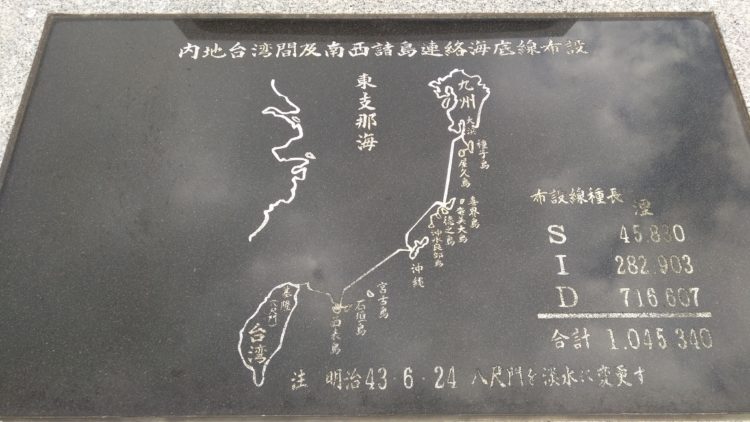 内地台湾間及南西諸島連絡海底線布設
東支那海
九州
大浜
種子島
屋久島
喜界島
奄美大島
徳之島
沖永良部島
沖縄
宮古島
石垣島
西表島
基隆
(八尺門)
台湾
布設線種長 浬
S 45.830
I 282.903
D 716.607
合計 1.045 340
注 明治43・6・24 八尺門を淡水に変更す